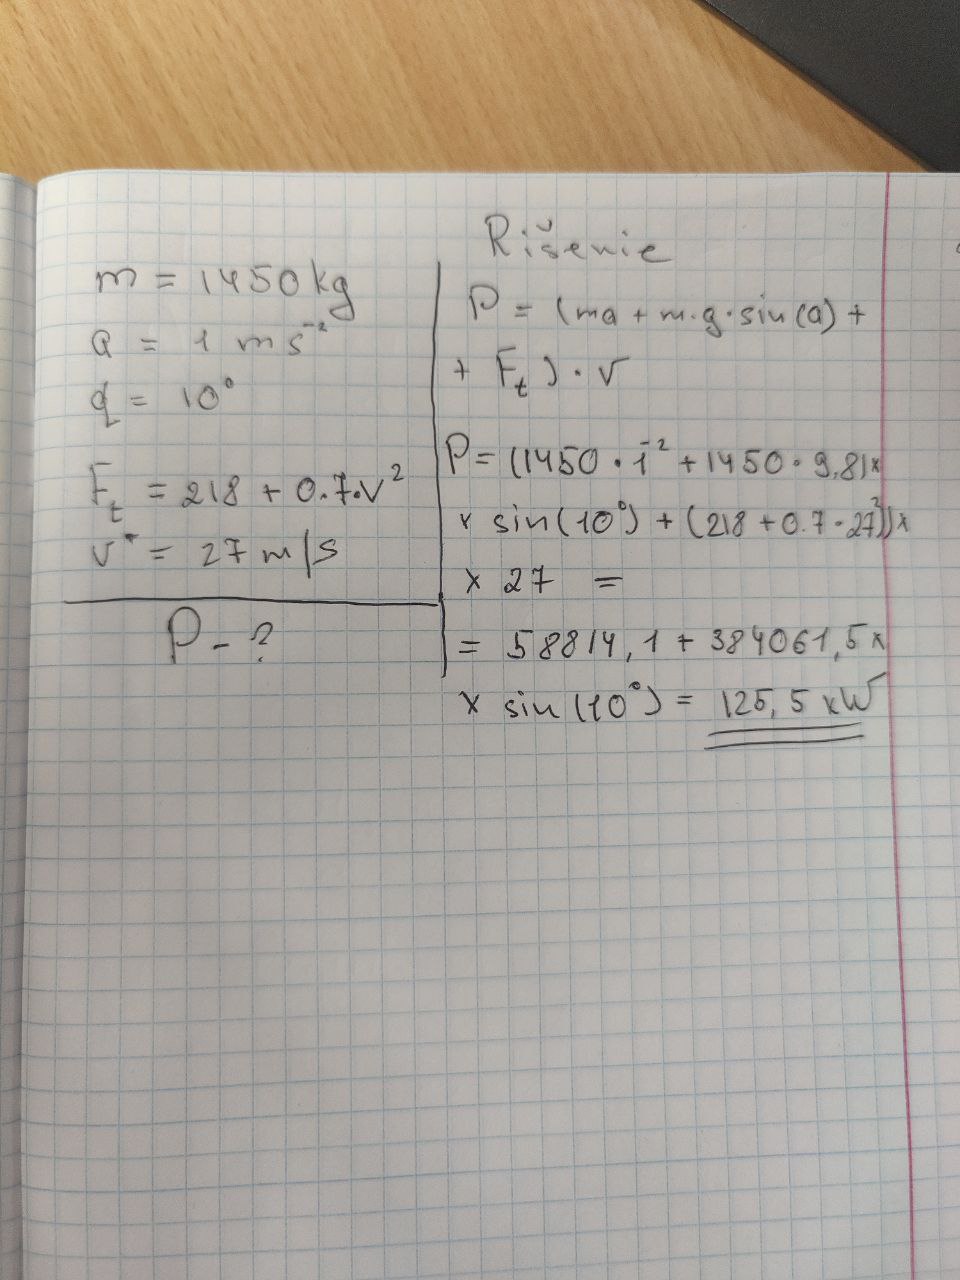 m = 1450 kg
a = 1 ms⁻²
α = 10°
Fₜ = 218 + 0.7·v²
v = 27 m/s
P - ?
Rišenie
P = (ma + m·g·sin(α) +
+ Fₜ)·v
P = (1450 · 1⁻² + 1450 · 9,81 x
x sin(10°) + (218 + 0.7 · 27²)) x
x 27 =
= 58814,1 + 384061,5 x
x sin(10°) = 125,5 kW